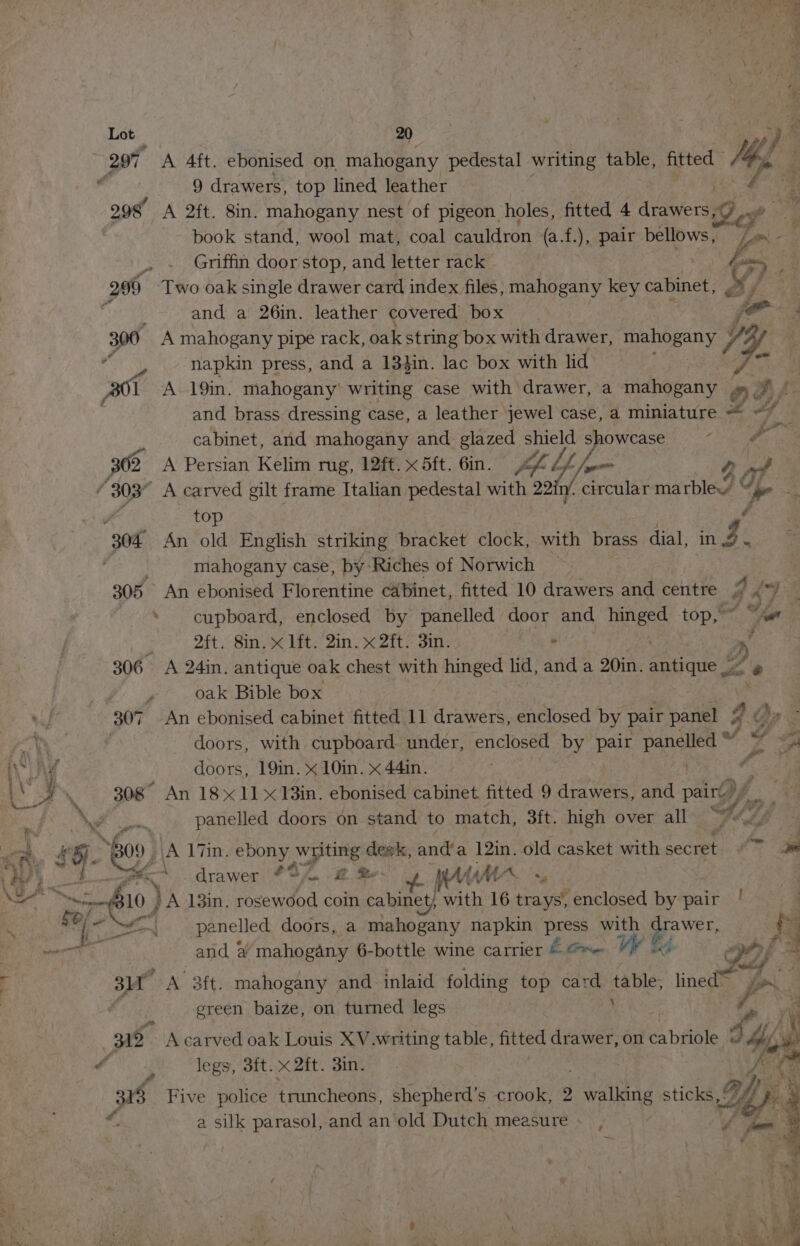 Lot 20
297 A 4ft. ebonised on mahogany pedestal writing table, fitted
9 drawers, top lined leather
298 A 2ft. 8in. mahogany nest of pigeon holes, fitted 4 drawers,
book stand, wool mat, coal cauldron (a.f.), pair bellows,
Griffin door stop, and letter rack
299 Two oak single drawer card index files, mahogany key cabinet,
and a 26in. leather covered box
300 A mahogany pipe rack, oak string box with drawer, mahogany
napkin press, and a 13½in. lac box with lid
301 A 19in. mahogany writing case with drawer, a mahogany
and brass dressing case, a leather jewel case, a miniature
cabinet, and mahogany and glazed shield showcase
302 A Persian Kelim rug, 12ft. × 5ft. 6in.
303 A carved gilt frame Italian pedestal with 22in. circular marble
top
304 An old English striking bracket clock, with brass dial, in
mahogany case, by Riches of Norwich
305 An ebonised Florentine cabinet, fitted 10 drawers and centre
cupboard, enclosed by panelled door and hinged top,
2ft. 8in. × 1ft. 2in. × 2ft. 3in.
306 A 24in. antique oak chest with hinged lid, and a 20in. antique
oak Bible box
307 An ebonised cabinet fitted 11 drawers, enclosed by pair panel
doors, with cupboard under, enclosed by pair panelled
doors, 19in. × 10in. × 44in.
308 An 18 × 11 × 13in. ebonised cabinet fitted 9 drawers, and pair
panelled doors on stand to match, 3ft. high over all
309 A 17in. ebony writing desk, and a 12in. old casket with secret
drawer
310 A 13in. rosewood coin cabinet, with 16 trays, enclosed by pair
panelled doors, a mahogany napkin press with drawer,
and a mahogany 6-bottle wine carrier
311 A 3ft. mahogany and inlaid folding top card table, lined
green baize, on turned legs
312 A carved oak Louis XV. writing table, fitted drawer, on cabriole
legs, 3ft. × 2ft. 3in.
313 Five police truncheons, shepherd's crook, 2 walking sticks,
a silk parasol, and an old Dutch measure